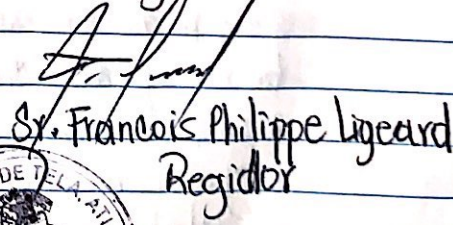 Sr. Francois Philippe Ligeard
Regidor
DE TELA, ATL